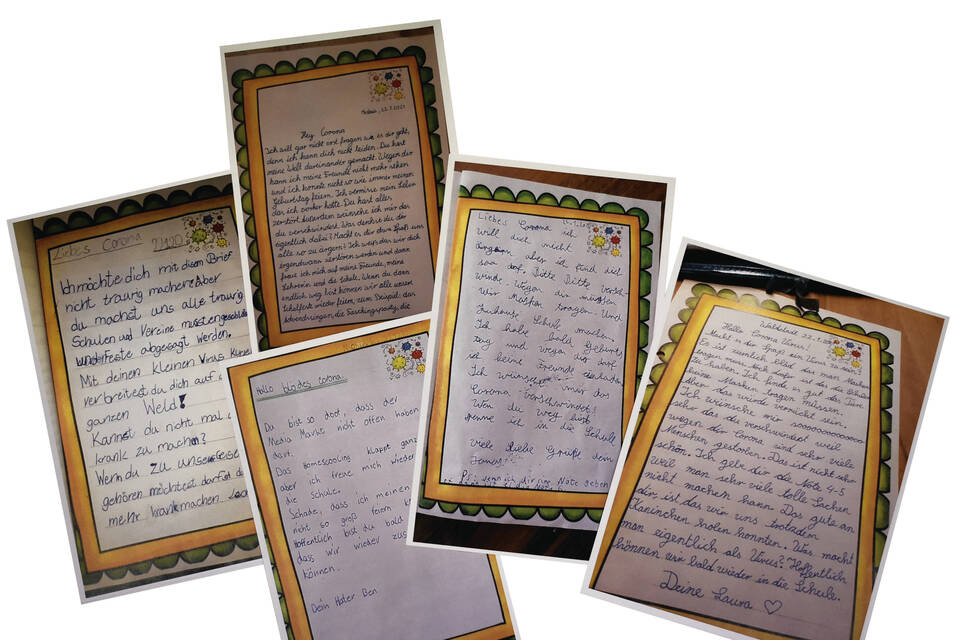 Hey Corona
Ich will gar nicht erst fragen wie es dir geht,
denn ich kann dich nicht leiden. Du hast
meine Welt durcheinander gemacht. Wegen dir
kann ich meine Freunde nicht mehr sehen
und ich konnte nicht so wie immer meinen
Geburtstag feiern. Ich vermisse mein Leben
das ich vorher hatte. Du hast alles
zerstört. Außerdem wünsche ich mir das
du verschwindest. Was denkst du dir
eigentlich dabei? Macht es dir etwa Spaß uns
alle so zu ärgern? Ich weiß das wir dich
irgendwann zerstören werden und dann
freue ich mich auf meine Freunde, meine
Lehrerin und die Schule. Wenn du dann
endlich weg bist können wir alle unsere
Schulfeste wieder feiern, zum Beispiel: das
die Faschingsparty, die
Liebes Corona
Ich möchte dich mit diesem Brief
nicht traurig machen. Aber
du machst uns alle traurig.
Schulen und Vereine mussten
und Feste abgesagt werden.
Mit deinen kleinen Virus
verbreitest du dich auf
ganzen Weld!
Kannst du nicht mal
krank zu machen?
Wenn du zu unserer
gehören möchtest darfst du
mehr krank machen.
Hallo blödes Corona.
Du bist so doof, dass der
Media Markt nicht offen haben
darf.
Das Homescooling klappt ganz
aber ich freue mich wieder
die Schule.
Schade, dass ich meinen
nicht so groß feiern
Hoffentlich bist du bald
dass wir wieder
können.
Dein Hater Ben
Liebes Corona ich
will dich nicht
aber ich find dich
saa dof. Bitte Bitte versch-
winde. Wegen dir müssen
wir Masken tragen. Und
Zuhause Schule machen.
Ich habe bald Geburts
tag und wegen dir darf
ich keine Freunde einladen.
Ich wünsche mir das
Corona verschwindet!
Wen du weg bist
ich in die Schule
viele Liebe Grüße dein
Ps: wenn ich dir eine Note geben
Waldstadt 22.1.2021
Hallo Corona Virus!
Macht es dir Spaß ein Virus zu sein?
Es ist ziemlich blöd das man Masken
tragen muss. Noch dofer ist das die Schulen
haben. Ich finde es gut das Tiere
keine Masken tragen müssen.
Aber das würde verrückt sein.
Ich wünsche mir soooooooooooooo
sehr das du verschwindest weil
wegen dir Corona sind sehr viele
Menschen gestorben. Das ist nicht sehr
schön. Ich gebe dir die Note 4-5
weil man sehr viele tolle Sachen
nicht machen kann. Das gute an
dir ist das wir uns trotzdem
Kaninchen holen konnten. Was macht
man eigentlich als Virus? Hoffentlich
können wir bald wieder in die Schule.
Deine Laura ♡